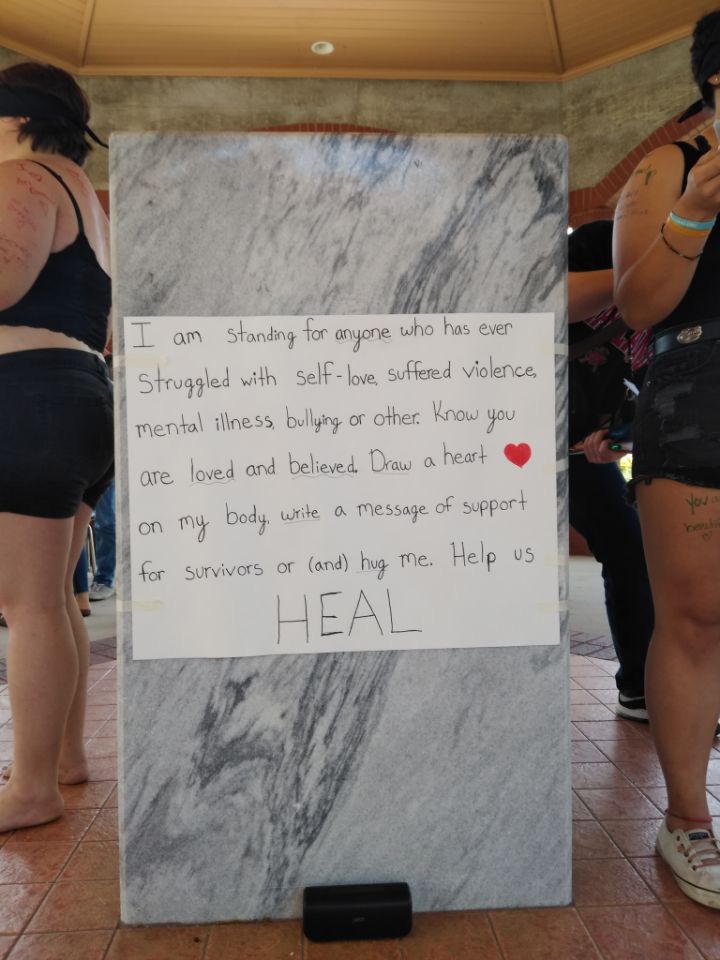 I am standing for anyone who has ever
struggled with self-love, suffered violence,
mental illness, bullying or other. Know you
are loved and believed. Draw a heart ❤
on my body, write a message of support
for survivors or (and) hug me. Help us
HEAL
You